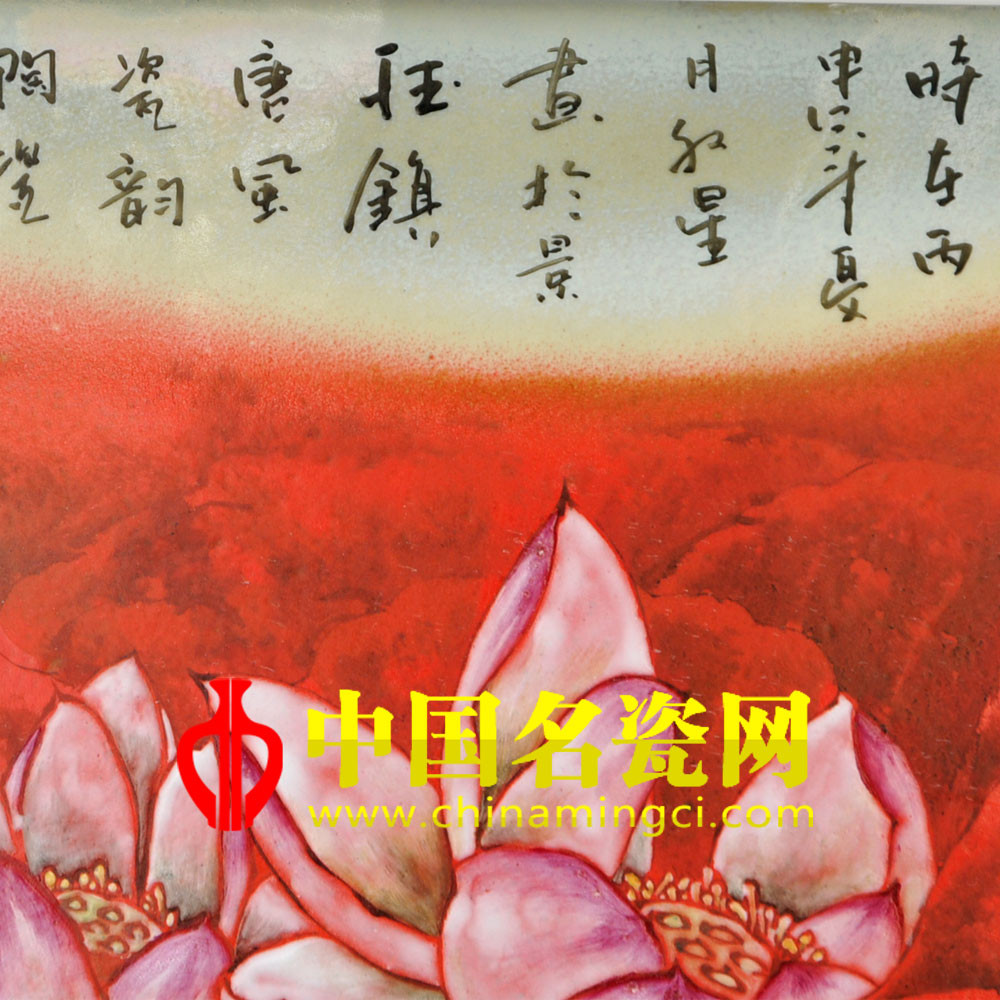 時在丙
申年夏
月紅星
畫於景
鎮
唐風
瓷韻
陶瓷
中国名瓷网
www.chinamingci.com